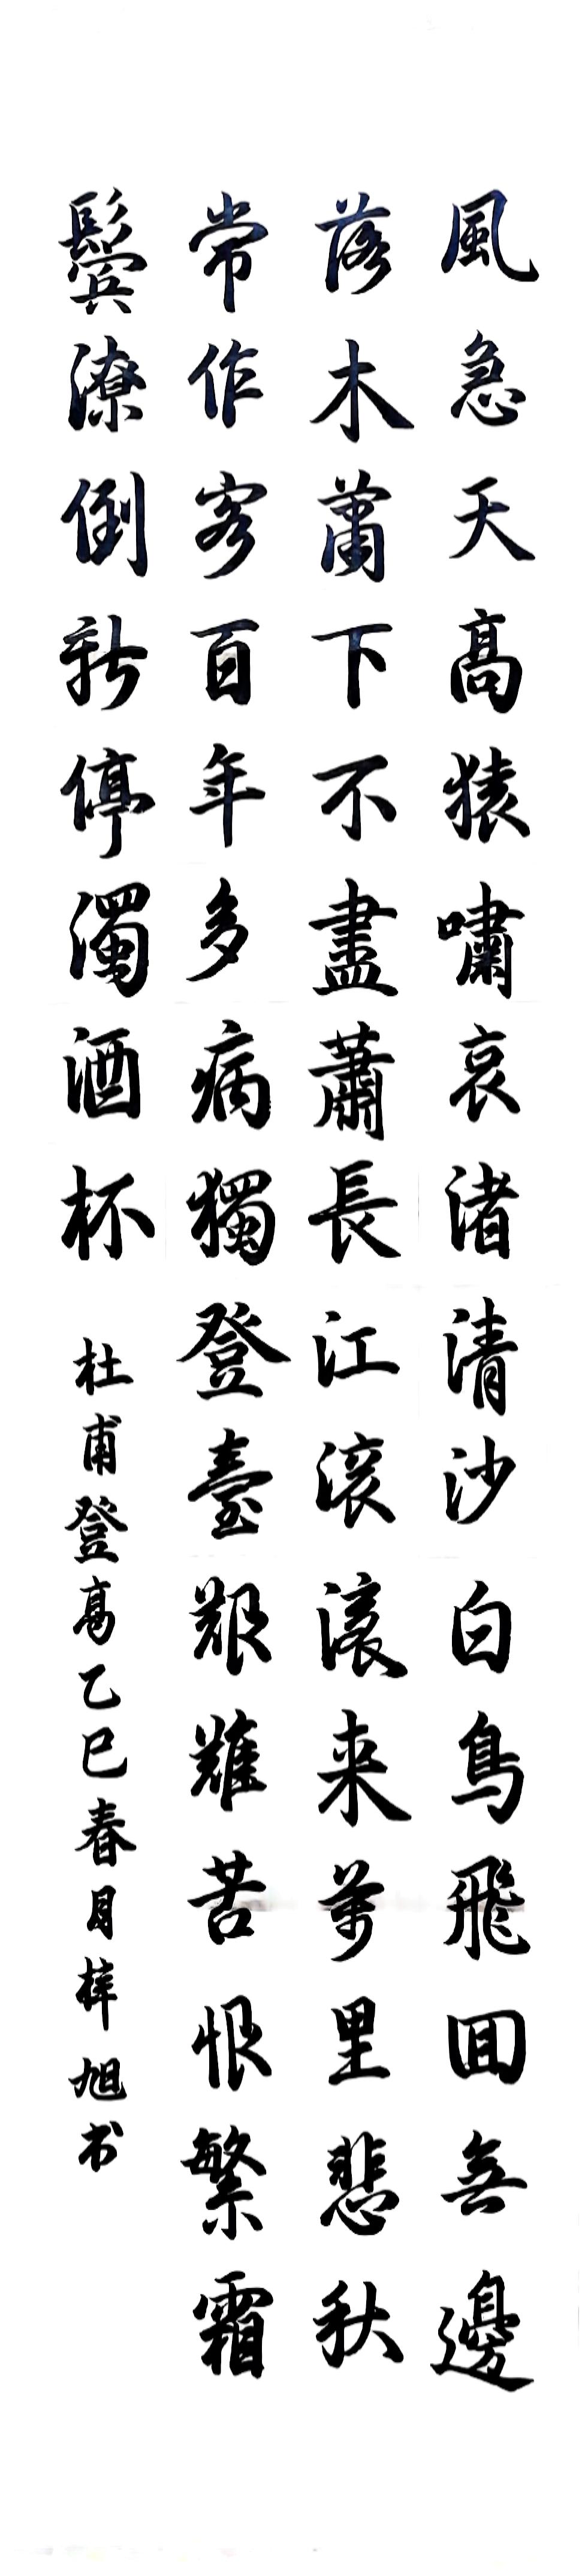 風急天高猿嘯哀渚清沙白鳥飛回無邊
落木蕭下不盡蕭長江滚滚来萬里悲秋
常作客百年多病獨登臺艱難苦恨繁霜
鬢潦倒新停濁酒杯
杜甫登高乙巳春月梓旭书